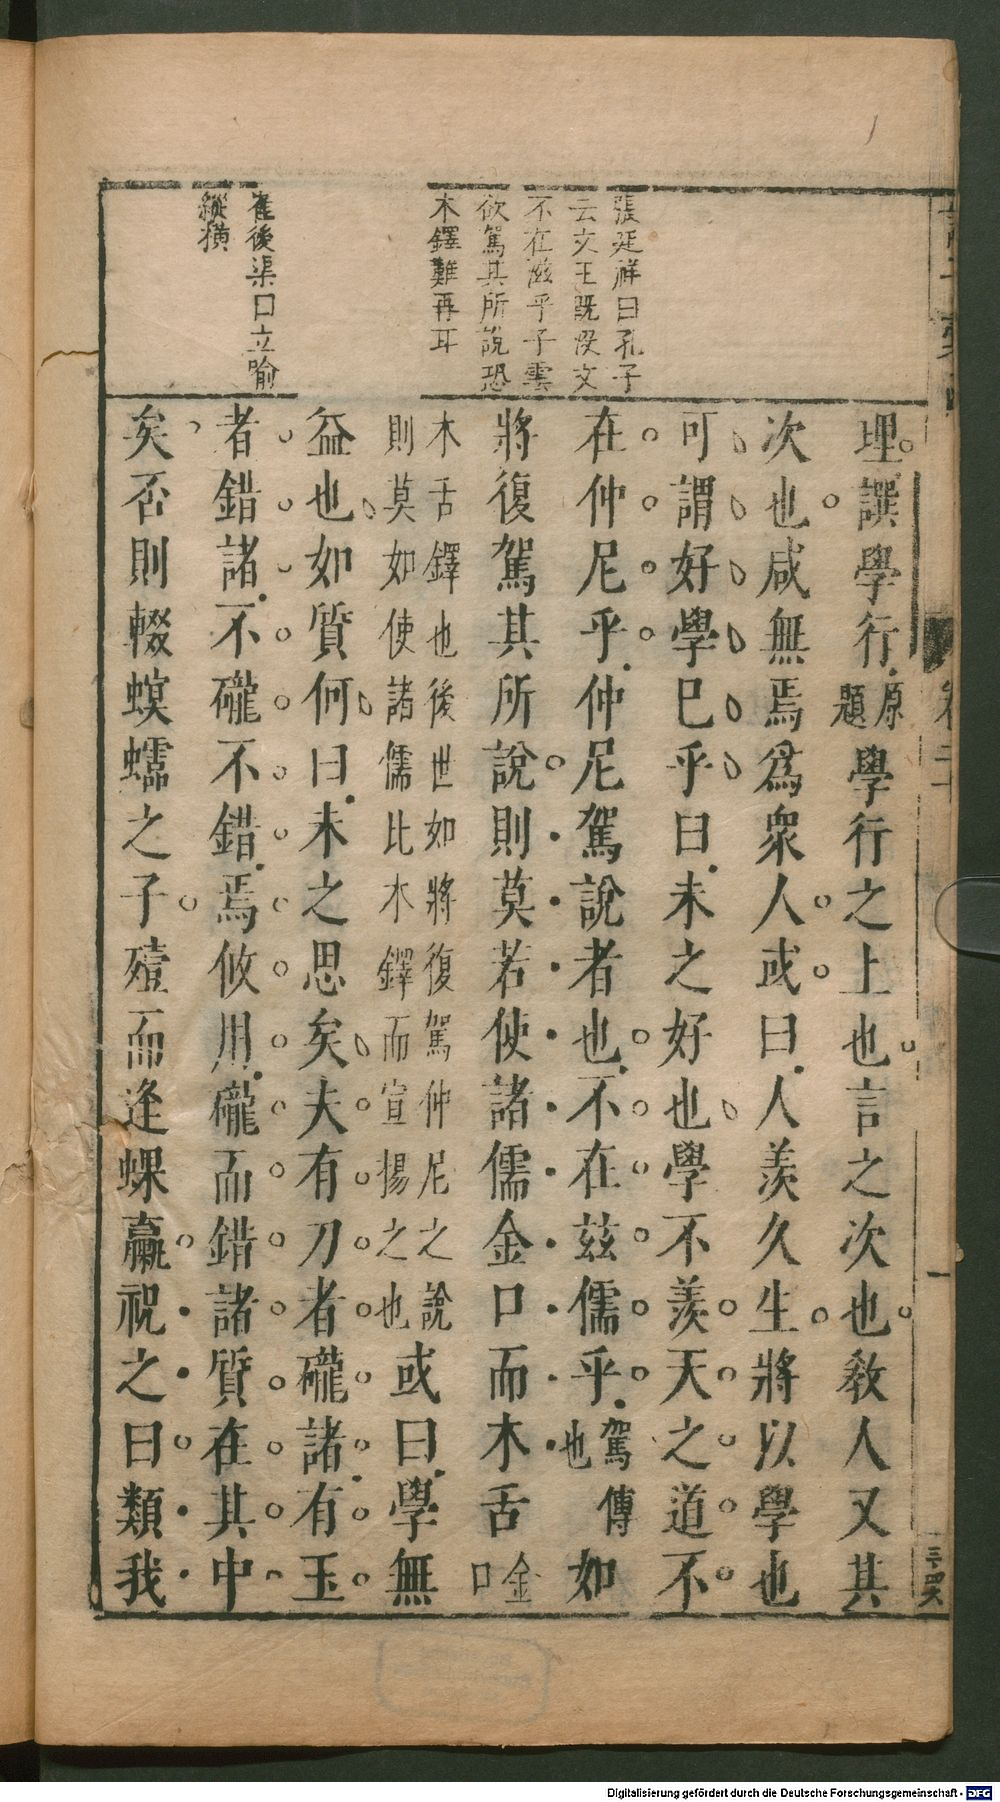 張廷祥曰孔子
云文王既沒文
不在滋乎子雲
欲駕其所說恐
木鐸難再耳
崔後渠口立喻
縱橫
理譔學行原題學行之上也言之次也教人又其
次也咸無焉爲衆人或曰人羨久生將以學也
可謂好學巳乎曰未之好也學不羨天之道不
在仲尼乎仲尼駕說者也不在茲儒乎駕傳也如
將復駕其所說則莫若使諸儒金口而木舌金口
木舌鐸也後世如將復駕仲尼之說
則莫如使諸儒比木鐸而宣揚之也或曰學無
益也如質何曰未之思矣夫有刀者礲諸有玉
者錯諸不礲不錯焉攸用礲而錯諸質在其中
矣否則輟螟蠕之子殪而逢蜾蠃祝之曰類我
一
Digitalisierung gefördert durch die Deutsche Forschungsgemeinschaft - DFG